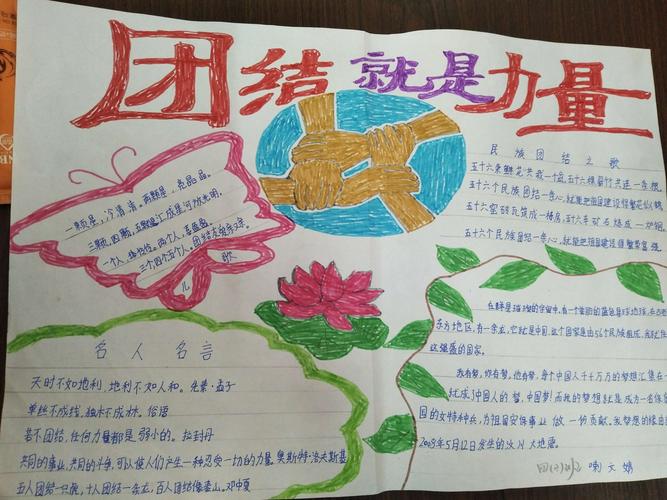 团结就是力量
一颗星，冷清清。两颗星，亮晶晶。
三颗，四颗，五颗星汇成星河放光明。
一个人，
两个人，
三个，四个，五个人。团结友爱亲又亲。
儿歌
民族团结之歌
五十六朵鲜花共栽一个盆，五十六棵翠竹共连一条根
五十六个民族团结一条心，就能把祖国建设得繁花似锦
五十六窑砖瓦筑成一幢房，五十六车矿石炼成一炉钢
五十六个民族团结一条心，就能把祖国建设得繁荣富强
在群星璀璨的宇宙中，有一个美丽的蓝色星球地球，在古老
东方地区，有一条龙，它就是中国，这个国家是由56个民族组成，
这强盛的国家。
我有梦，你有梦，他有梦，每个中国人千千万万的梦想汇集在一
就成了中国人的梦，中国梦！而我的梦想就是成为一名保家
国的女特种兵，为祖国安保事业做一份贡献。我梦想的缘由
2008年5月12日发生的汶川大地震。
名人名言
天时不如地利，地利不如人和。先秦·孟子
单丝不成线，独木不成林。俗语
若不团结，任何力量都是弱小的。拉封丹
共同的事业，共同的斗争，可以使人们产生一种忍受一切的力量。奥斯特·洛夫斯基
五人团结一只虎，十人团结一条龙，百人团结像泰山。邓中夏